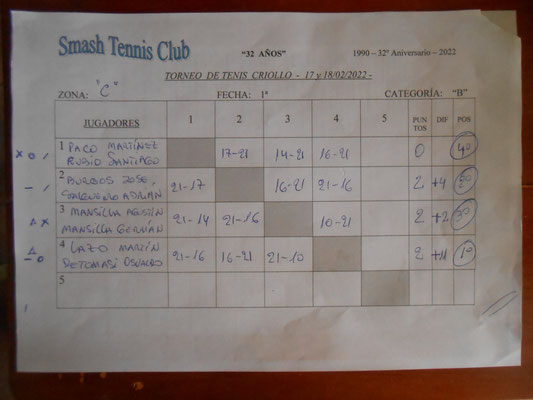 Smash Tennis Club
"32 AÑOS"
1990 – 32º Aniversario – 2022
TORNEO DE TENIS CRIOLLO - 17 y 18/02/2022 -
ZONA: "C" FECHA: 1ª CATEGORÍA: "B"
JUGADORES 1 2 3 4 5 PUNTOS DIF POS
1 PACO MARTÍNEZ
RUBIO SANTIAGO 17-21 14-21 16-21 0 4º
2 BURGOS JOSE,
ADRIÁN 21-17 16-21 21-16 2 +4 2º
3 MANSILLA AGUSTÍN
MANSILLA GERMÁN 21-14 21-16 10-21 2 +2 3º
4 LAZO MARTÍN
DETOMASI OSVALDO 21-16 16-21 21-10 2 +11 1º
5